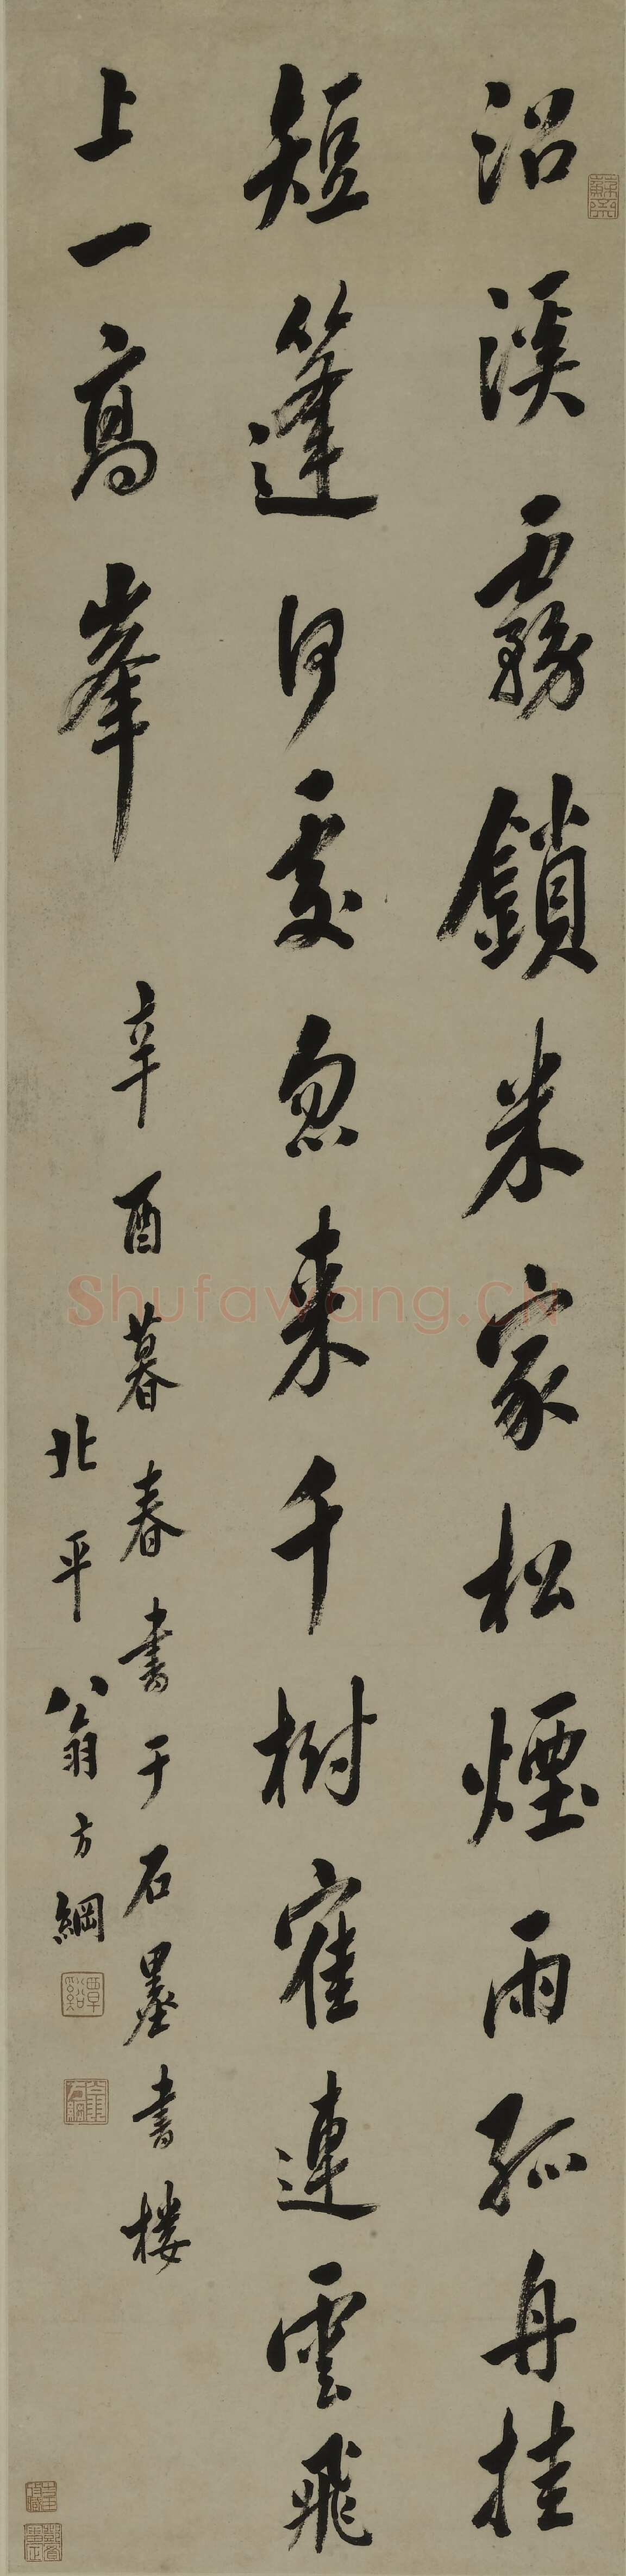 沿溪霧鎖米家松煙雨孤舟挂
短篷何處忽来千樹雀連雲飛
上一高峯
辛酉暮春書于石墨書樓
北平翁方綱
覃谿
Shufawang.CN